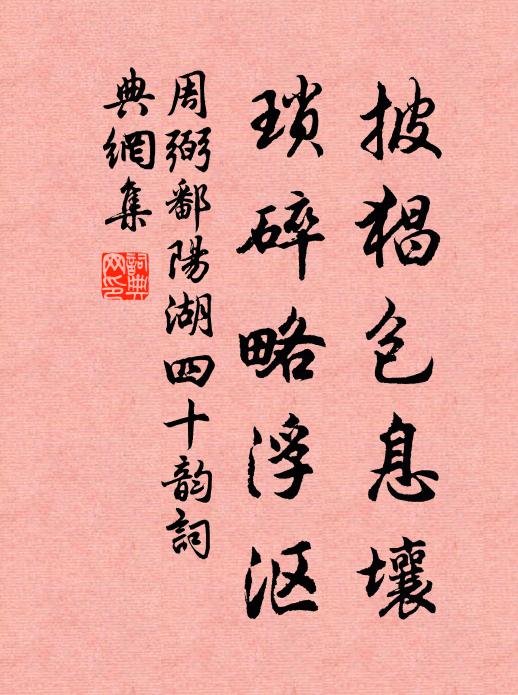 披猖包息壤
瑣碎略浮沤
周弼鄱陽湖四十韵詞
典網集
詞典
网印